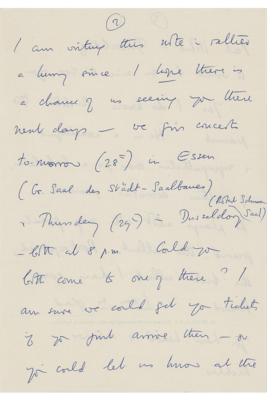 (2)
I am writing this note in rather
a hurry since I hope there is
a chance of us seeing you these
next days — we give concerts
to-morrow (28th) in Essen
(Gr. Saal des Städt-Saalbaues)
(Robert Schumann
& Thursday (29th) in Dusseldorf Saal)
— both at 8 p.m. Could you
both come to one of these? I
am sure we could get you tickets
if you just arrive then — or
you could let us know at the